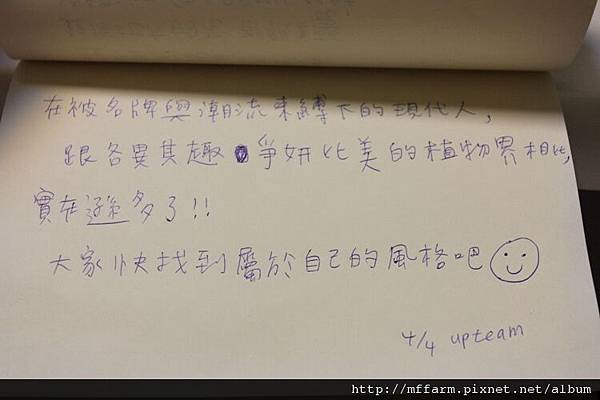 在被名牌與潮流束縛下的現代人，
跟各異其趣 爭妍比美的植物界相比，
實在遜多了!!
大家快找到屬於自己的風格吧
4/4 upteam
http://mffarm.pixnet.net/album